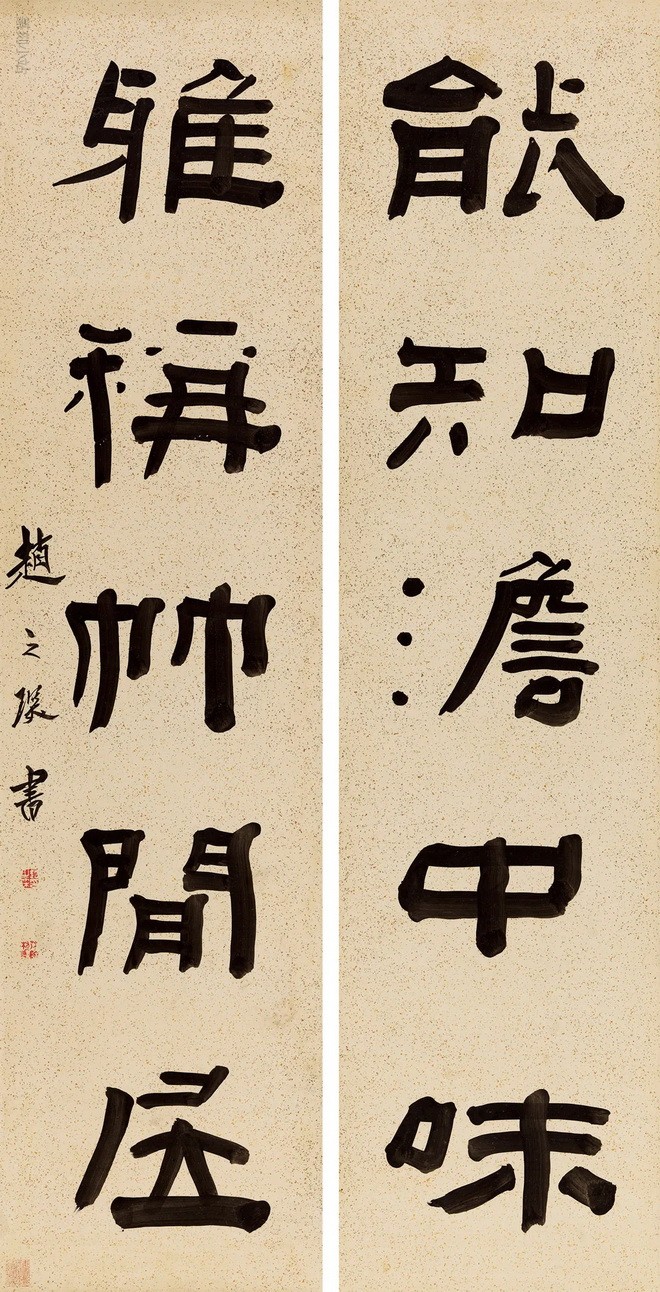 能知澹中味
雅稱竹間居
趙之琛書